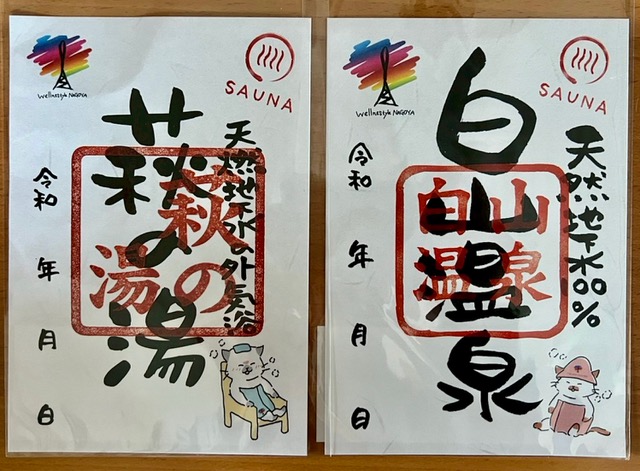 Wellnesstyle NAGOYA
SAUNA
天然地下水の外気浴
萩の湯
萩の湯
令和 年 月 日
Wellnesstyle NAGOYA
SAUNA
天然地下水100%
白山温泉
白山温泉
令和 年 月 日